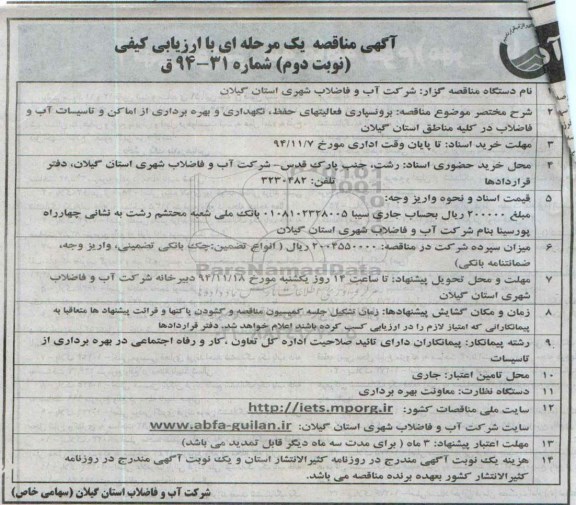 آگهی مناقصه یک مرحله ای با ارزیابی کیفی
(نوبت دوم) شماره ۳۱-۹۴ ق
۱ نام دستگاه مناقصه گزار: شرکت آب و فاضلاب شهری استان گیلان
۲ شرح مختصر موضوع مناقصه: برونسپاری فعالیتهای حفظ، نگهداری و بهره برداری از اماکن و تاسیسات آب و
فاضلاب در کلیه مناطق استان گیلان
۳ مهلت خرید اسناد: تا پایان وقت اداری مورخ ۹۴/۱۱/۷
۴ محل خرید حضوری اسناد: رشت، جنب پارک قدس- شرکت آب و فاضلاب شهری استان گیلان، دفتر
قراردادها تلفن: ۳۲۳۰۴۸۲
۵ قیمت اسناد و نحوه واریز وجه:
مبلغ ۲۰۰۰۰۰ ریال بحساب جاری سیبا ۰۱۰۸۱۰۲۳۲۸۰۰۵ بانک ملی شعبه محتشم رشت به نشانی چهارراه
پورسینا بنام شرکت آب و فاضلاب شهری استان گیلان
۶ میزان سپرده شرکت در مناقصه: ۲۰۰۴۵۵۰۰۰۰ ریال ( انواع تضمین:چک بانکی تضمینی، واریز وجه،
ضمانتنامه بانکی)
۷ مهلت و محل تحویل پیشنهاد: تا ساعت ۱۴ روز یکشنبه مورخ ۹۴/۱۱/۱۸ دبیرخانه شرکت آب و فاضلاب
شهری استان گیلان
۸ زمان و مکان گشایش پیشنهادها: زمان تشکیل جلسه کمیسیون مناقصه و گشودن پاکتها و قرائت پیشنهاد ها متعاقبا به
پیمانکارانی که امتیاز لازم را در ارزیابی کسب کرده باشند اعلام خواهد شد. دفتر قراردادها
۹ رشته پیمانکار: پیمانکاران دارای تائید صلاحیت اداره کل تعاون ، کار و رفاه اجتماعی در بهره برداری از
تاسیسات
۱۰ محل تامین اعتبار: جاری
۱۱ دستگاه نظارت: معاونت بهره برداری
۱۲ سایت ملی مناقصات کشور: http://iets.mporg.ir
سایت شرکت آب و فاضلاب شهری استان گیلان: www.abfa-guilan.ir
۱۳ مهلت اعتبار پیشنهاد: ۳ ماه ( برای مدت سه ماه دیگر قابل تمدید می باشد)
۱۴ هزینه یک نوبت آگهی مندرج در روزنامه کثیرالانتشار استان و یک نوبت آگهی مندرج در روزنامه
کثیرالانتشار کشور بعهده برنده مناقصه می باشد.
شرکت آب و فاضلاب استان گیلان (سهامی خاص)
ParsNamadData